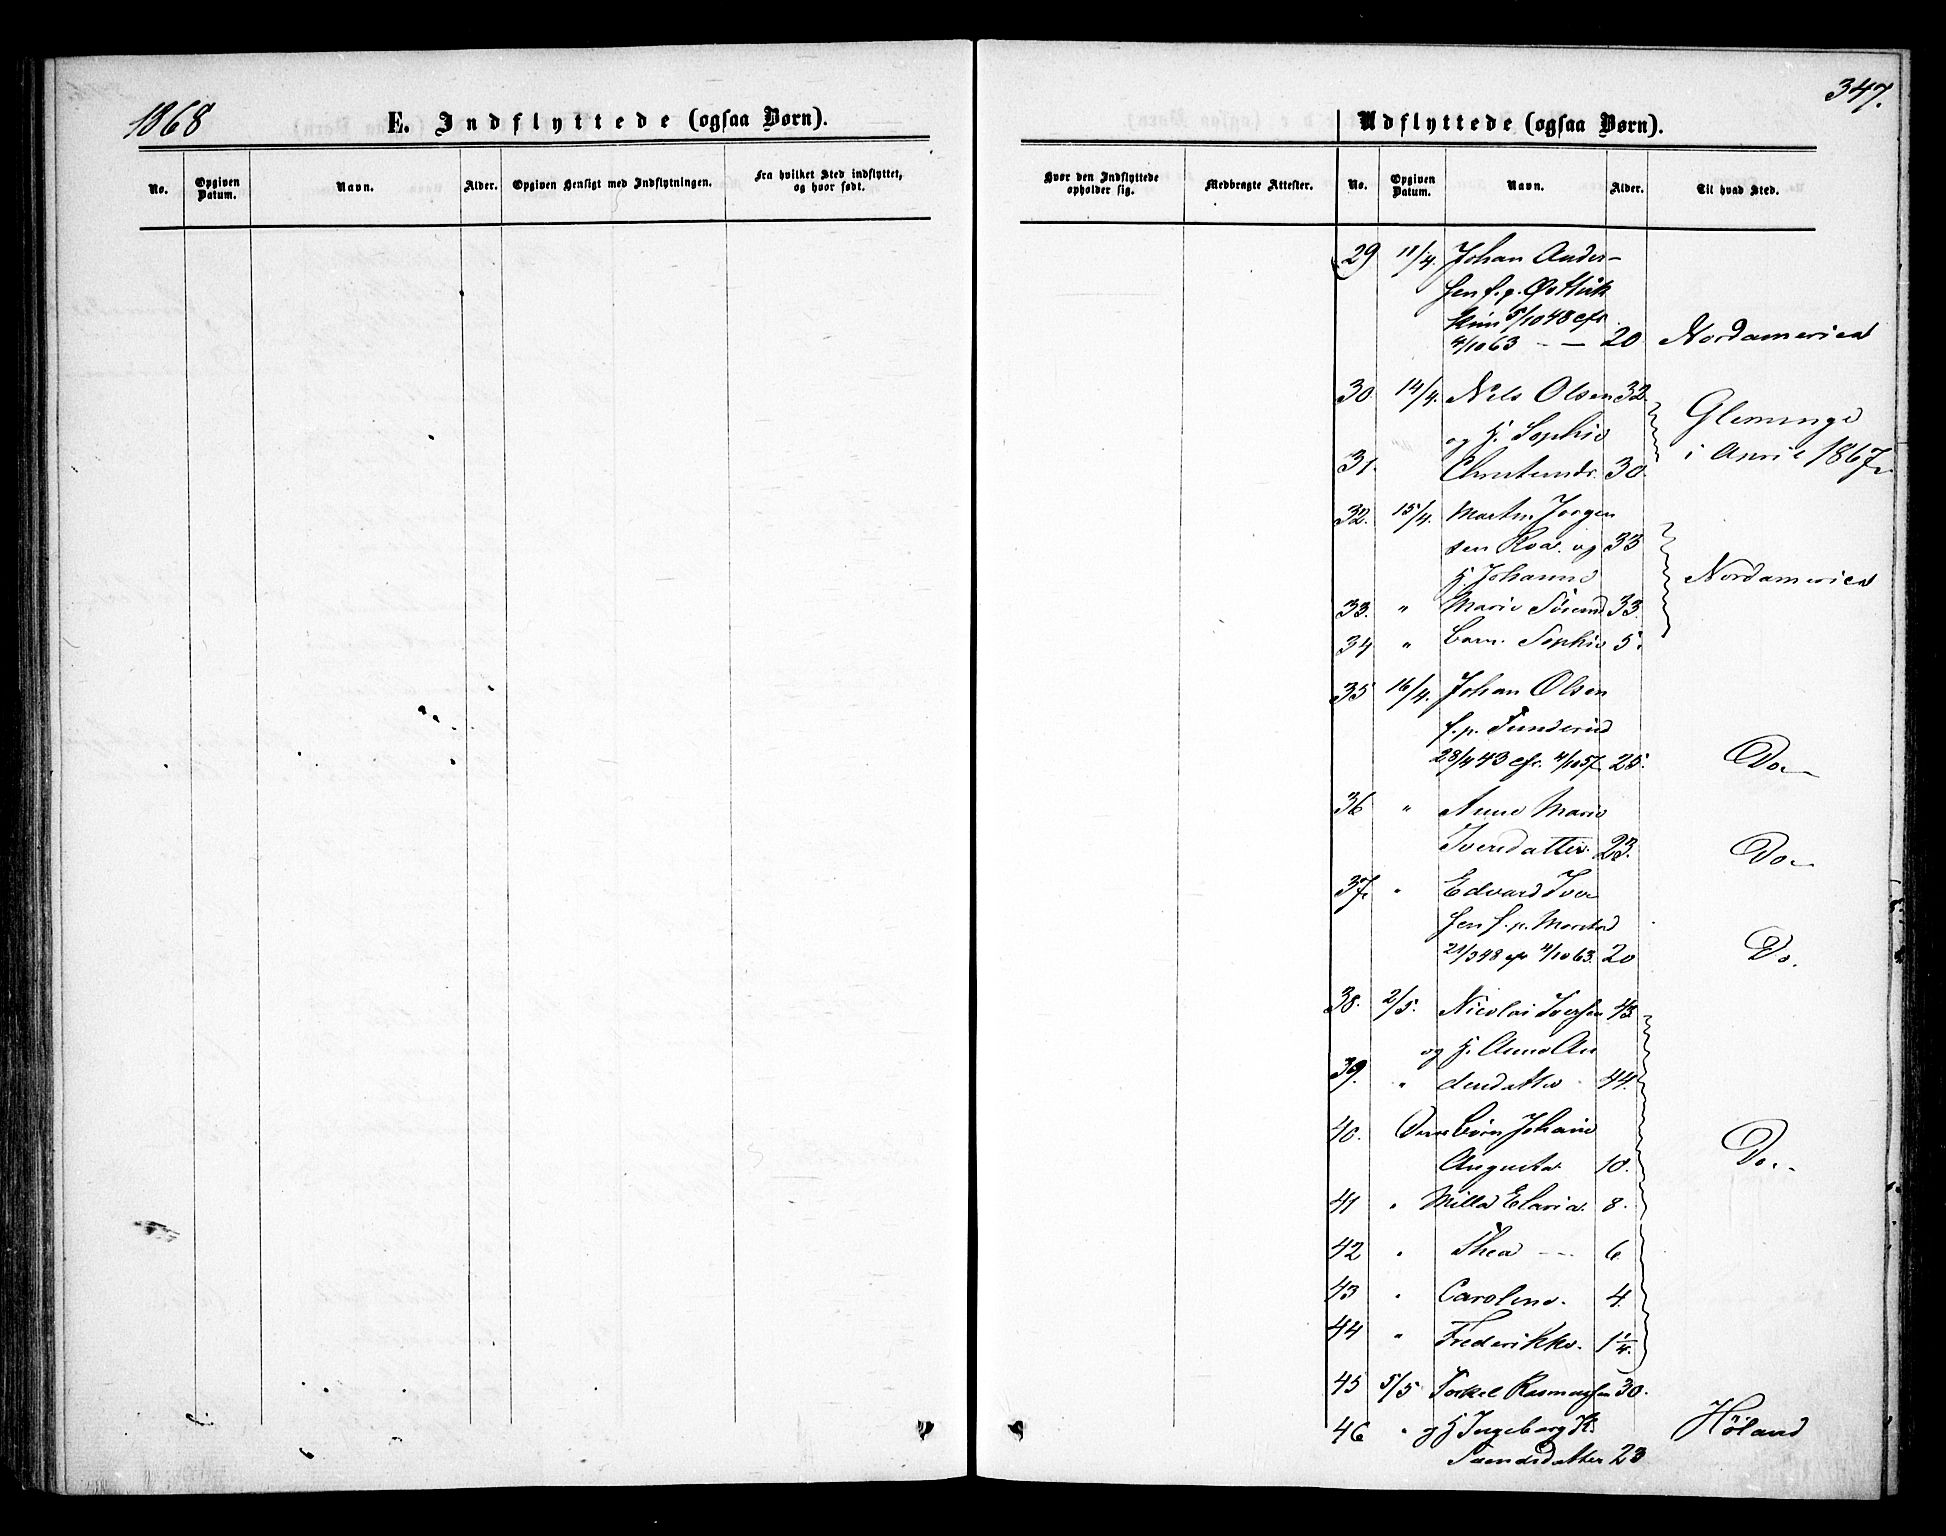 1868
E. Indflyttede (ogsaa Børn).
No.
Opgiven Datum.
Navn.
Alder.
Opgiven Hensigt med Indflytningen.
Fra hvilket Sted indflyttet, og hvor født.
347.
Udflyttede (ogsaa Børn).
Hvor den Indflyttede opholder sig.
Medbragte Attester.
No.
Opgiven Datum.
Navn.
Alder.
Til hvad Sted.
29 11/4. Johan Ander-
sen f. p.
5/10 48 cfr
4/10 63 - — 20 Nordamerica
30 14/4. Nels Olsen 32. Glemminge
og H. Sophie i April 1867.
31. 30.
32. 15/4. Martin Jørgen
sen og 33
H. Johanne Nordamerica
33. " Marie 33.
34 " Barn. Sophie 5.
35 16/4. Johan Olsen
f. p.
28/4 43 cfr. 4/10 57 25. Do.
36 " Anne Marie
Iversdatter. 23. Do.
37. " Edvard Iver
sen f. p.
21/3 48 cfr 4/10 63. 20 Do.
38. 2/5. Nicolai Iversen 43.
og H. Anne An
39. " dersdatter 44.
40. Børn Johanne Do.
Augusta 10.
41 " Milla Elaria. 8.
42 " Thea — 6
43 " Caroline. 4.
44 " Frederikke. 1 1/4.
45 5/5 Torkel Rasmussen 30.
46 " og H Ingeborg K. Höland
Svendsdatter 23